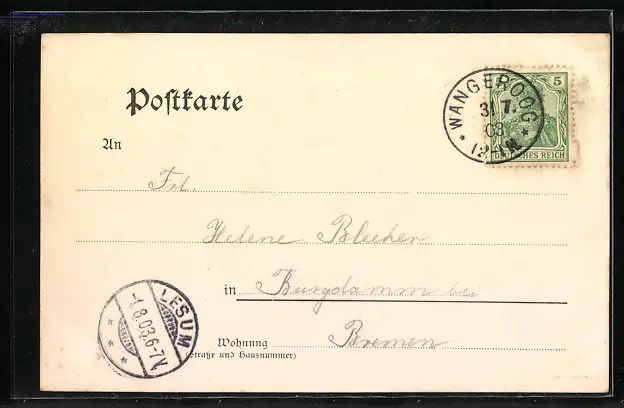 Postkarte
WANGEROOG
31 7.
03
* 12-1N *
5
DEUTSCHES REICH
An
Frl.
Helene Blecher
in Burgdamm bei
Wohnung Bremen
(Straße und Hausnummer)
LESUM
-1.8.03.6-7V.
* * *